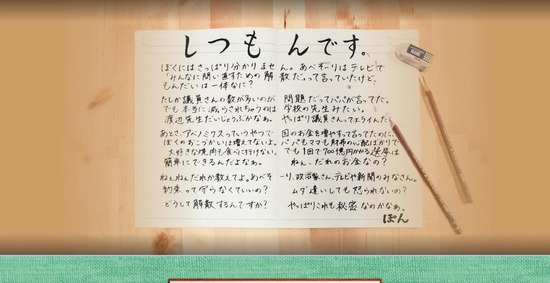 しつもんです。
ぼくにはさっぱり分かりません。あべそーりはテレビで
「みんなに問い直すための解散だ。」って言っていたけど、
もんだいは一体なに?
たしか議員さんの数が多いのが問題だってパパが言ってた。
でも本当に減らされちゃうのは学校の先生みたい。
渡辺先生だいじょうぶかなぁ。やっぱり議員さんってエライんだ
あとさ、アベノミクスっていうやつで国のお金を増やすって言ってたのに、
ぼくのおこづかいは増えてないよ。パパもママも財布の心配ばかりで
大好きな焼肉も食べに行けない。でも1回で700億円かかる選挙は
簡単にできるんだよなぁ。ねぇ、だれのお金なの?
ねぇねぇだれか教えてよ。あべそーり、政治家さん、テレビや新聞のみなさん。
約束って守らなくていいの? ムダ遣いしても怒られないの?
どうして解散するんですか? やっぱりこれも秘密なのかなぁ。
ぽん